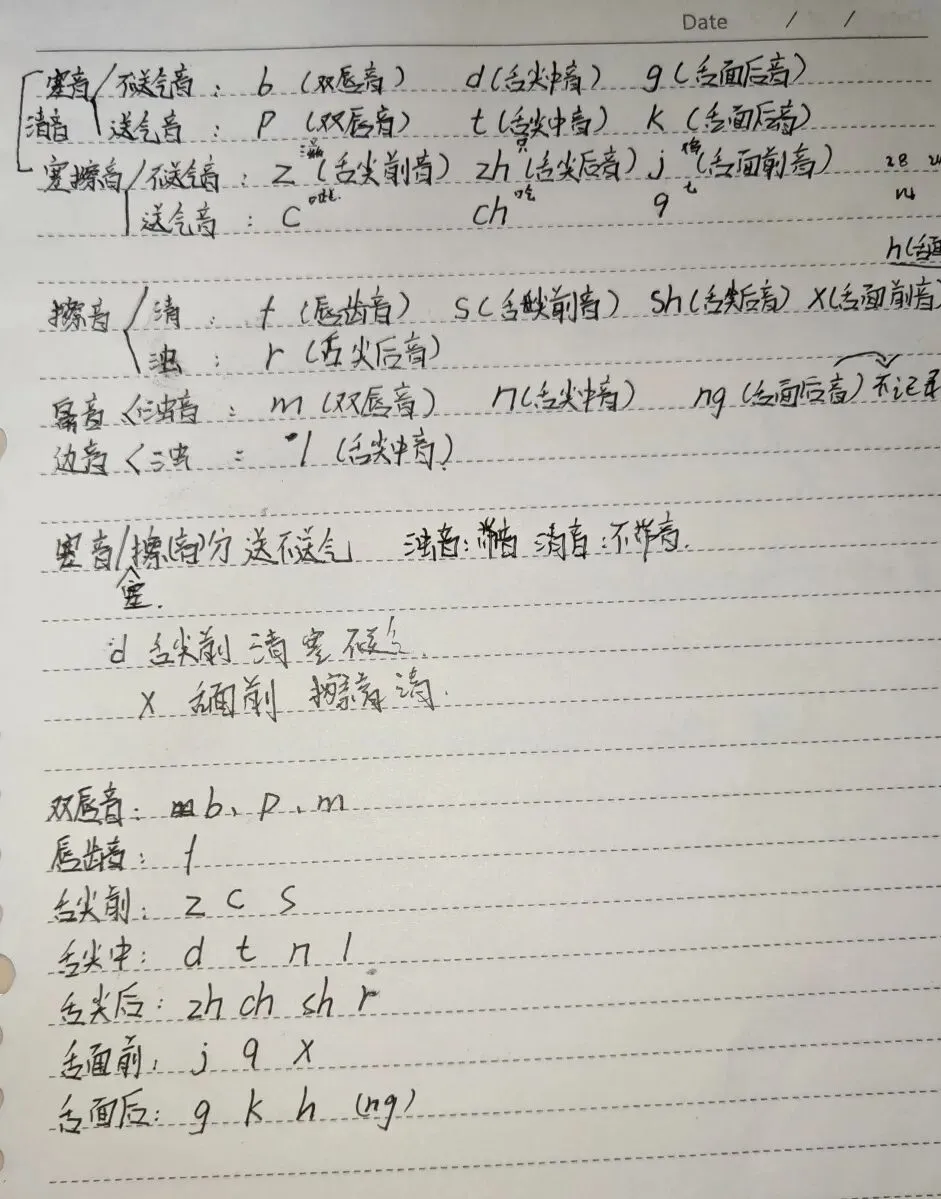 Date / /
塞音 不送气音: b (双唇音) d (舌尖中音) g (舌面后音)
清音 送气音: p (双唇音) t (舌尖中音) k (舌面后音)
塞擦音 不送气音: z (舌尖前音) zh (舌尖后音) j (舌面前音)
送气音: c ch 吃 q
h (舌面
擦音 清: f (唇齿音) s (舌尖前音) sh (舌尖后音) x (舌面前音)
浊: r (舌尖后音)
鼻音 浊音: m (双唇音) n (舌尖中音) ng (舌面后音) 不记录
边音 浊: l (舌尖中音)
塞音/擦(音)分 送不送气 浊音: 清音:不炸音.
塞.
d 舌尖前 清 塞 不送气.
x 舌面前 擦音 清.
双唇音: b、p、m
唇齿音: f
舌尖前: z c s
舌尖中: d t n l
舌尖后: zh ch sh r
舌面前: j q x
舌面后: g k h (ng)